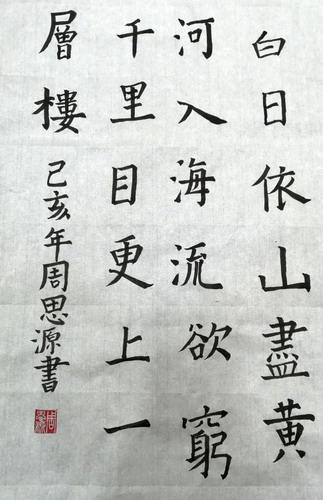 白日依山盡黄
河入海流欲窮
千里目更上一
層樓
己亥年周思源書